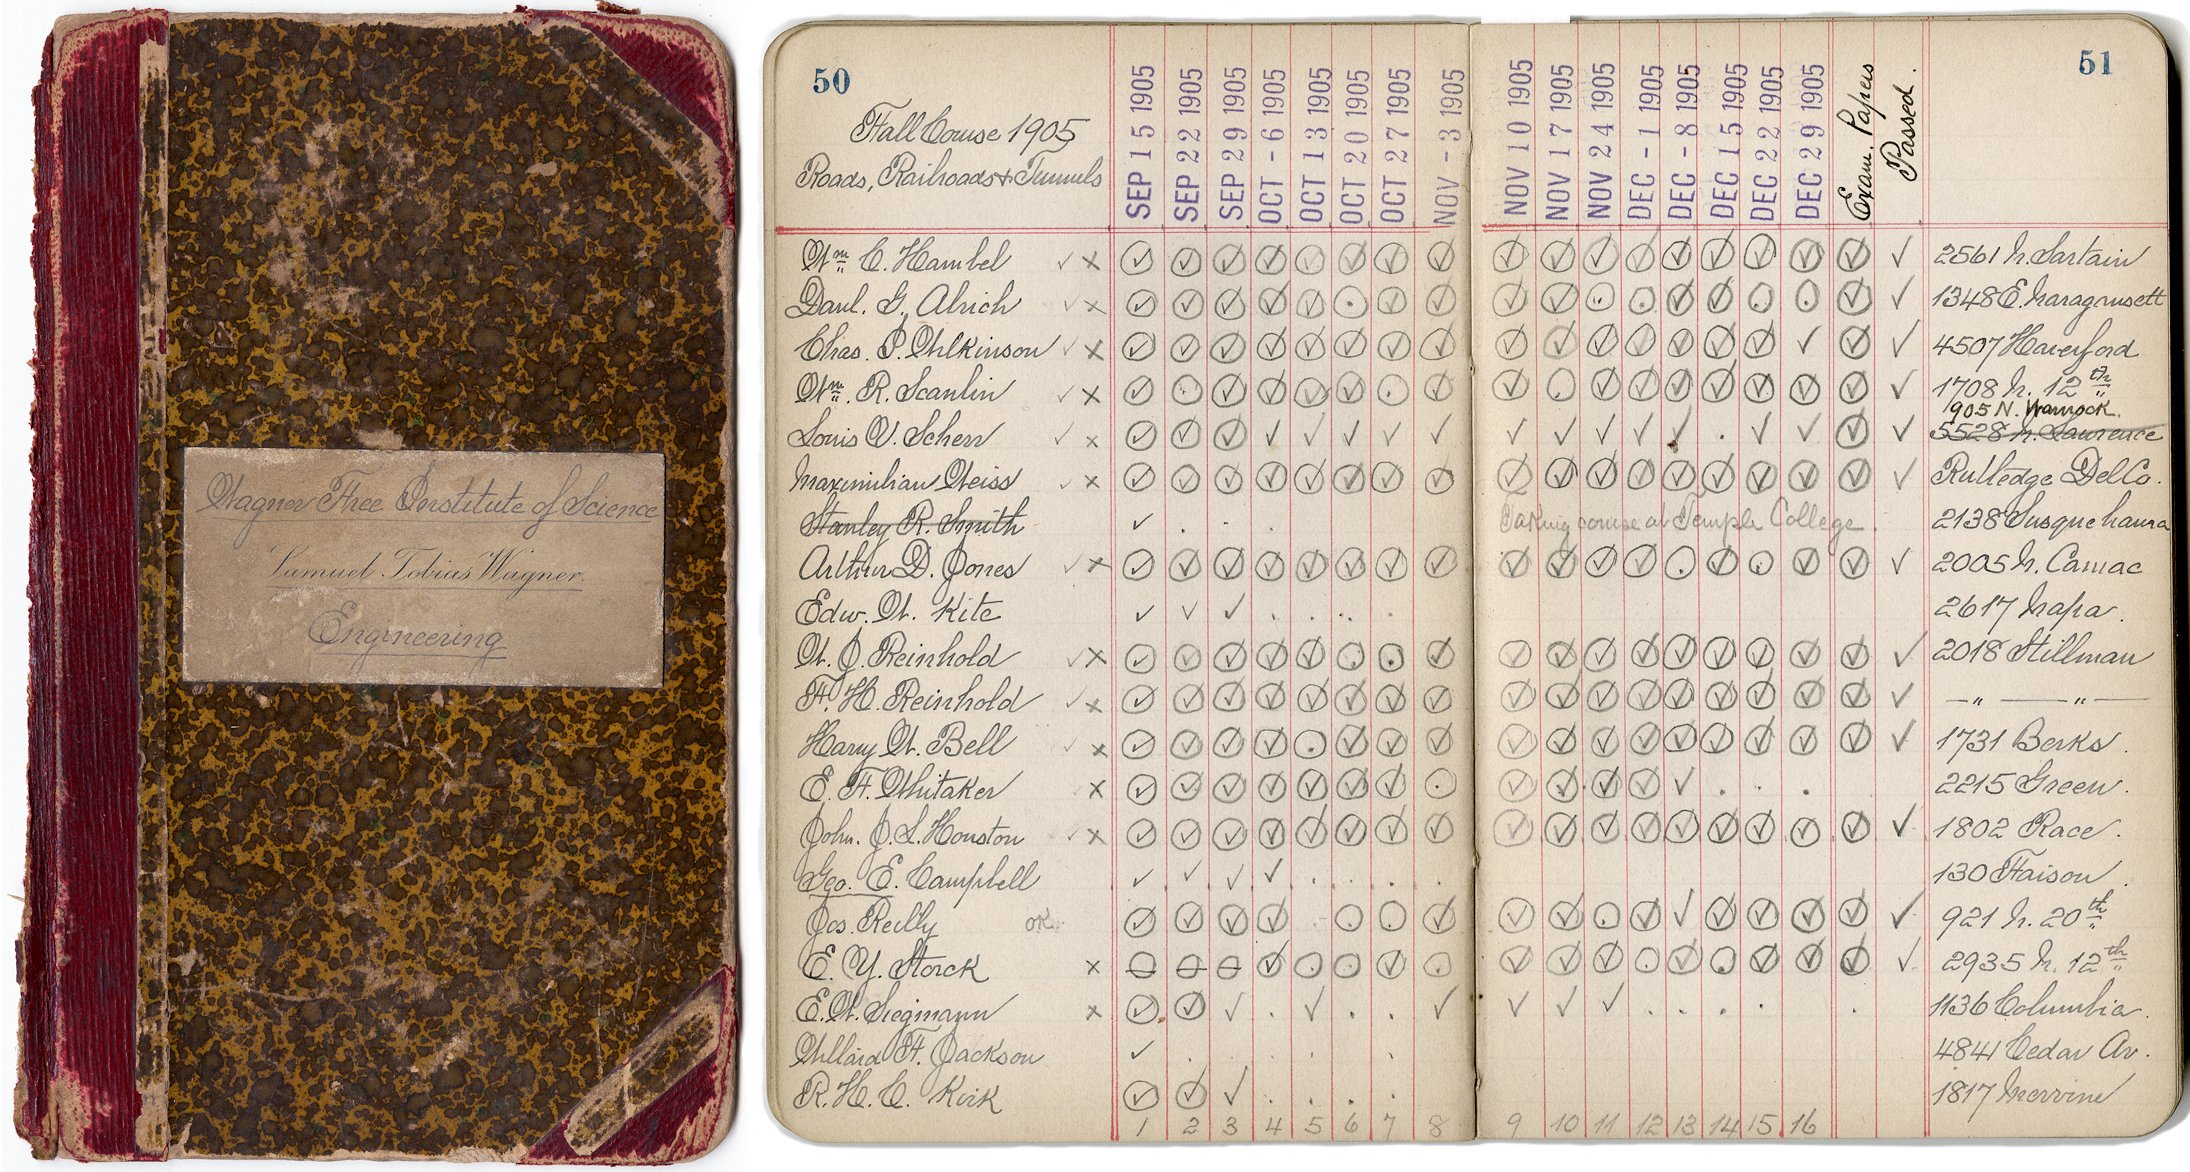 Wagner Free Institute of Science
Samuel Tobias Wagner.
Engineering
50
Fall Course 1905
Roads, Railroads & Tunnels
SEP 15 1905
SEP 22 1905
SEP 29 1905
OCT - 6 1905
OCT 13 1905
OCT 20 1905
OCT 27 1905
NOV - 3 1905
NOV 10 1905
NOV 17 1905
NOV 24 1905
DEC - 1 1905
DEC - 8 1905
DEC 15 1905
DEC 22 1905
DEC 29 1905
Exam. Papers
Passed.
51
Wm. C. Hambel ✓ x 2561 N. Sartain
Danl. G. Alrich ✓ x 1348 E.
Chas. P. Wilkinson ✓ x 4507 Haverford
Wm. R. Scanlin ✓ x 1708 N. 12th
905 N. Warnock.
Louis V. Scherr ✓ x 5528 N. Lawrence
Maximilian Weiss ✓ x Rutledge Del Co.
Stanley R. Smith Taking course at Temple College. 2138 Susquehanna
Arthur D. Jones ✓ x 2005 N. Camac
Edw. W. Kite 2617 Napa.
W. J. Reinhold ✓ x 2018 Stillman
F. H. Reinhold ✓ x — " — " —
Harry W. Bell ✓ x 1731 Berks.
E. F. Whitaker x 2215 Green.
John. J. L. Houston ✓ x 1802 Race.
Geo. E. Campbell 130 Faison
Jos. Reilly OK. 921 N. 20th
E. Y. Storck x 2935 N. 12th
E. W. Siegmann x 1136 Columbia.
Willard F. Jackson 4841 Cedar Av.
R. H. C. Kirk 1817 Mervine
1 2 3 4 5 6 7 8 9 10 11 12 13 14 15 16